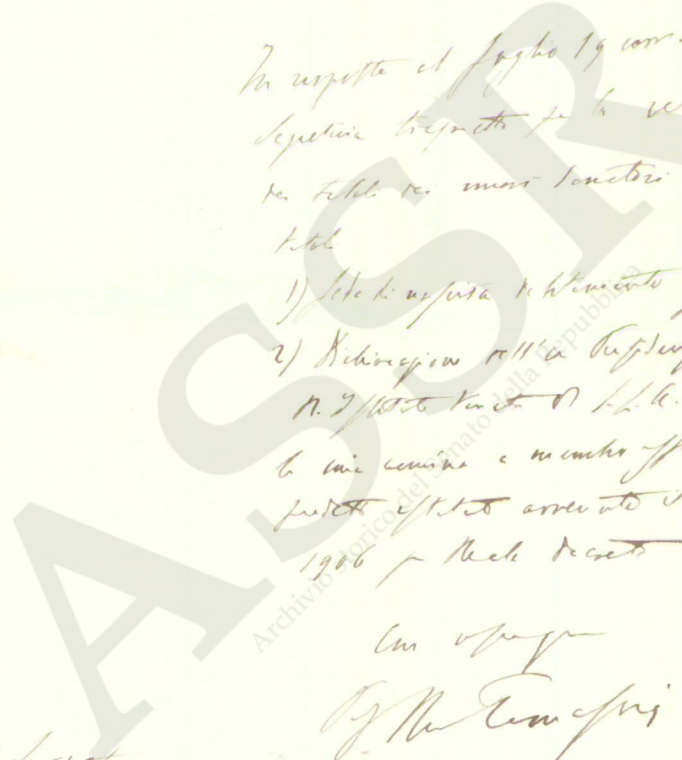 In risposta al foglio 19 corr.
Segreteria trasmetto per la ve
dei titoli dei nuovi Senatori
titoli
1) fede di nascita
2) Dichiarazione dell'
R. Istituto Veneto di S. L. A.
la mia nomina a membro eff
predetto istituto avvenuta
1906 per Reale decreto
Con ossequio
ASSR
Archivio storico del Senato della Repubblica